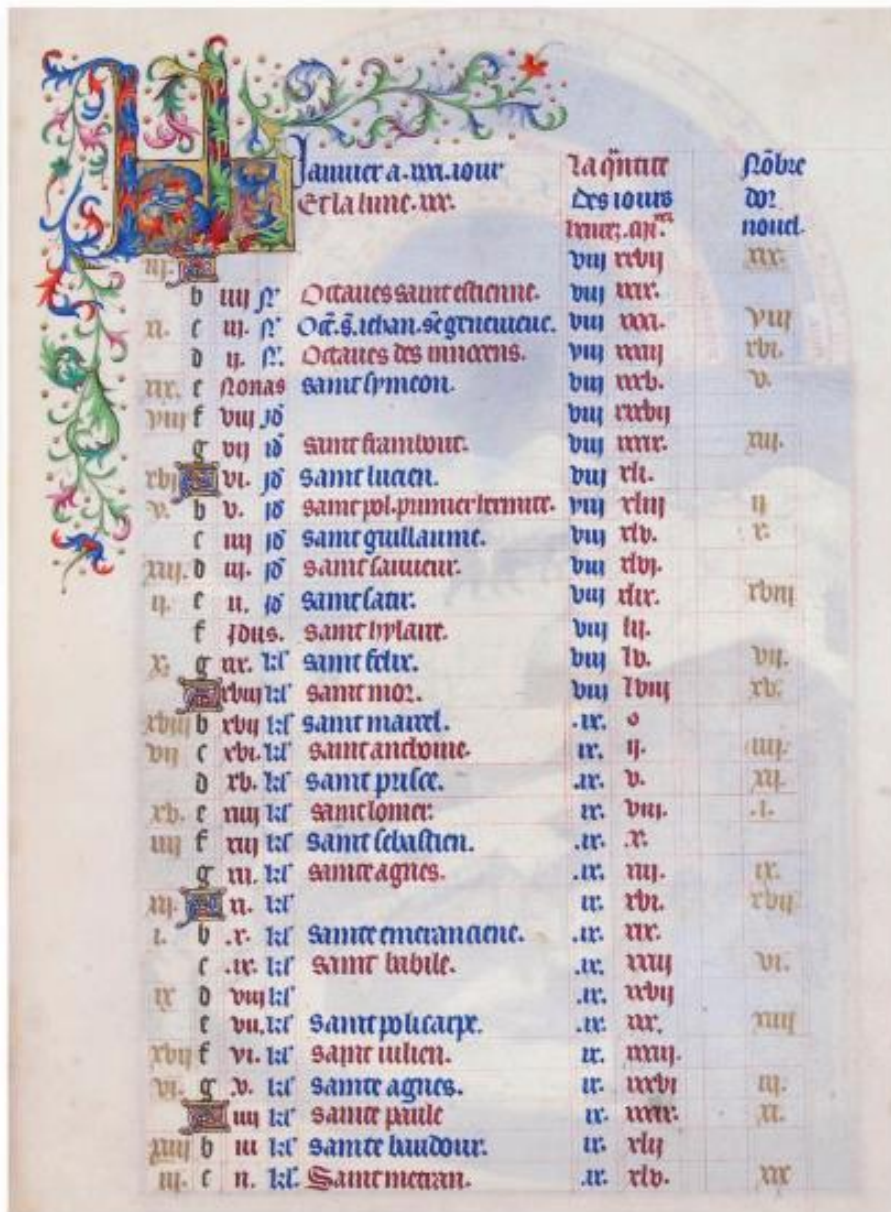 KL Januier a .xxxi. iour La q̃ntite Nõbre
Et la lune .xxx. des iours dor
nouel.
iij. A viij xxvij xix.
b iiij Nº Octaues saint estienne. viij xxix.
xi. c iij. Nº Oct̃. s̃. iehan. sẽ geneuieue. viij xxxi. viij
d ij. Nº Octaues des innocens. viij xxxiij xvi.
xix. e Nonas saint symeon. viij xxxv. v.
viij f viij id̃ viij xxxvij
g vij id̃ saint frambout. viij xxxix. xiij.
xvi A vi. id̃ saint lucien. viij xli.
v. b v. id̃ saint pol. premier hermite. viij xliij ij
c iiij id̃ saint guillaume. viij xlv. x.
xiij. d iij. id̃ saint sauueur. viij xlvj.
ij. e ii. id̃ saint satir. viij xlix. xviij
f Idus. saint hylaire. viij lij.
x. g xix. kl' saint felix. viij lv. vij.
A xviij kl' saint mor. viij lviij xv.
xviij b xvij kl' saint marcel. .ix. o
vij c xvi. kl' saint anthoine. ix. ij. iiij.
d xv. kl' saint prisce. .ix. v. xij.
xv. e xiiij kl' saint lomer. ix. viij. .i.
iiij f xiij kl' saint sebastien. .ix. .x.
g xii. kl' sainte agnes. ix. xiij. ix.
xij. A xi. kl' ix. xvi. xvij
i. b .x. kl' sainte emeranciene. .ix. xix.
c .ix. kl' saint babile. .ix. xxiij vi.
ix d viij kl' .ix. xxvij
e vii. kl' saint policarpe. .ix. xxx. xiiij
xvij f vi. kl' saint iulien. ix. xxxiij.
vi. g .v. kl' sainte agnes. ix. xxxvi iij.
A iiij kl' sainte paule ix. xxxix. xi.
xiiij b iii kl' sainte baudour. ix. xlij
iij. c ii. kl'. Saint metran. .ix. xlv. xix